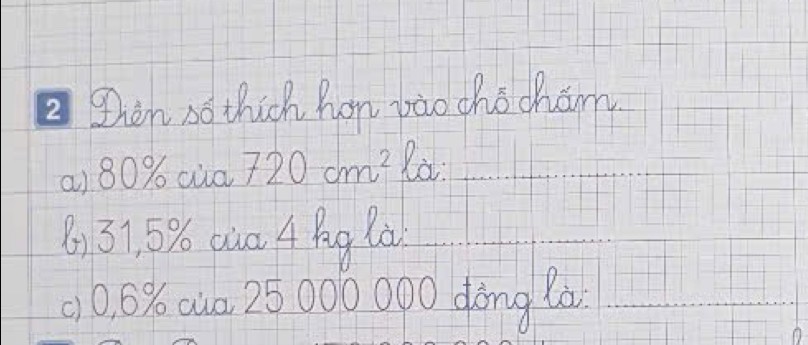 2 Điền số thích hợn vào chỗ chấm.
a) 80% của 720 cm² là: ..................
b) 31,5% của 4 kg là: ..................
c) 0,6% của 25 000 000 đồng là: ..................